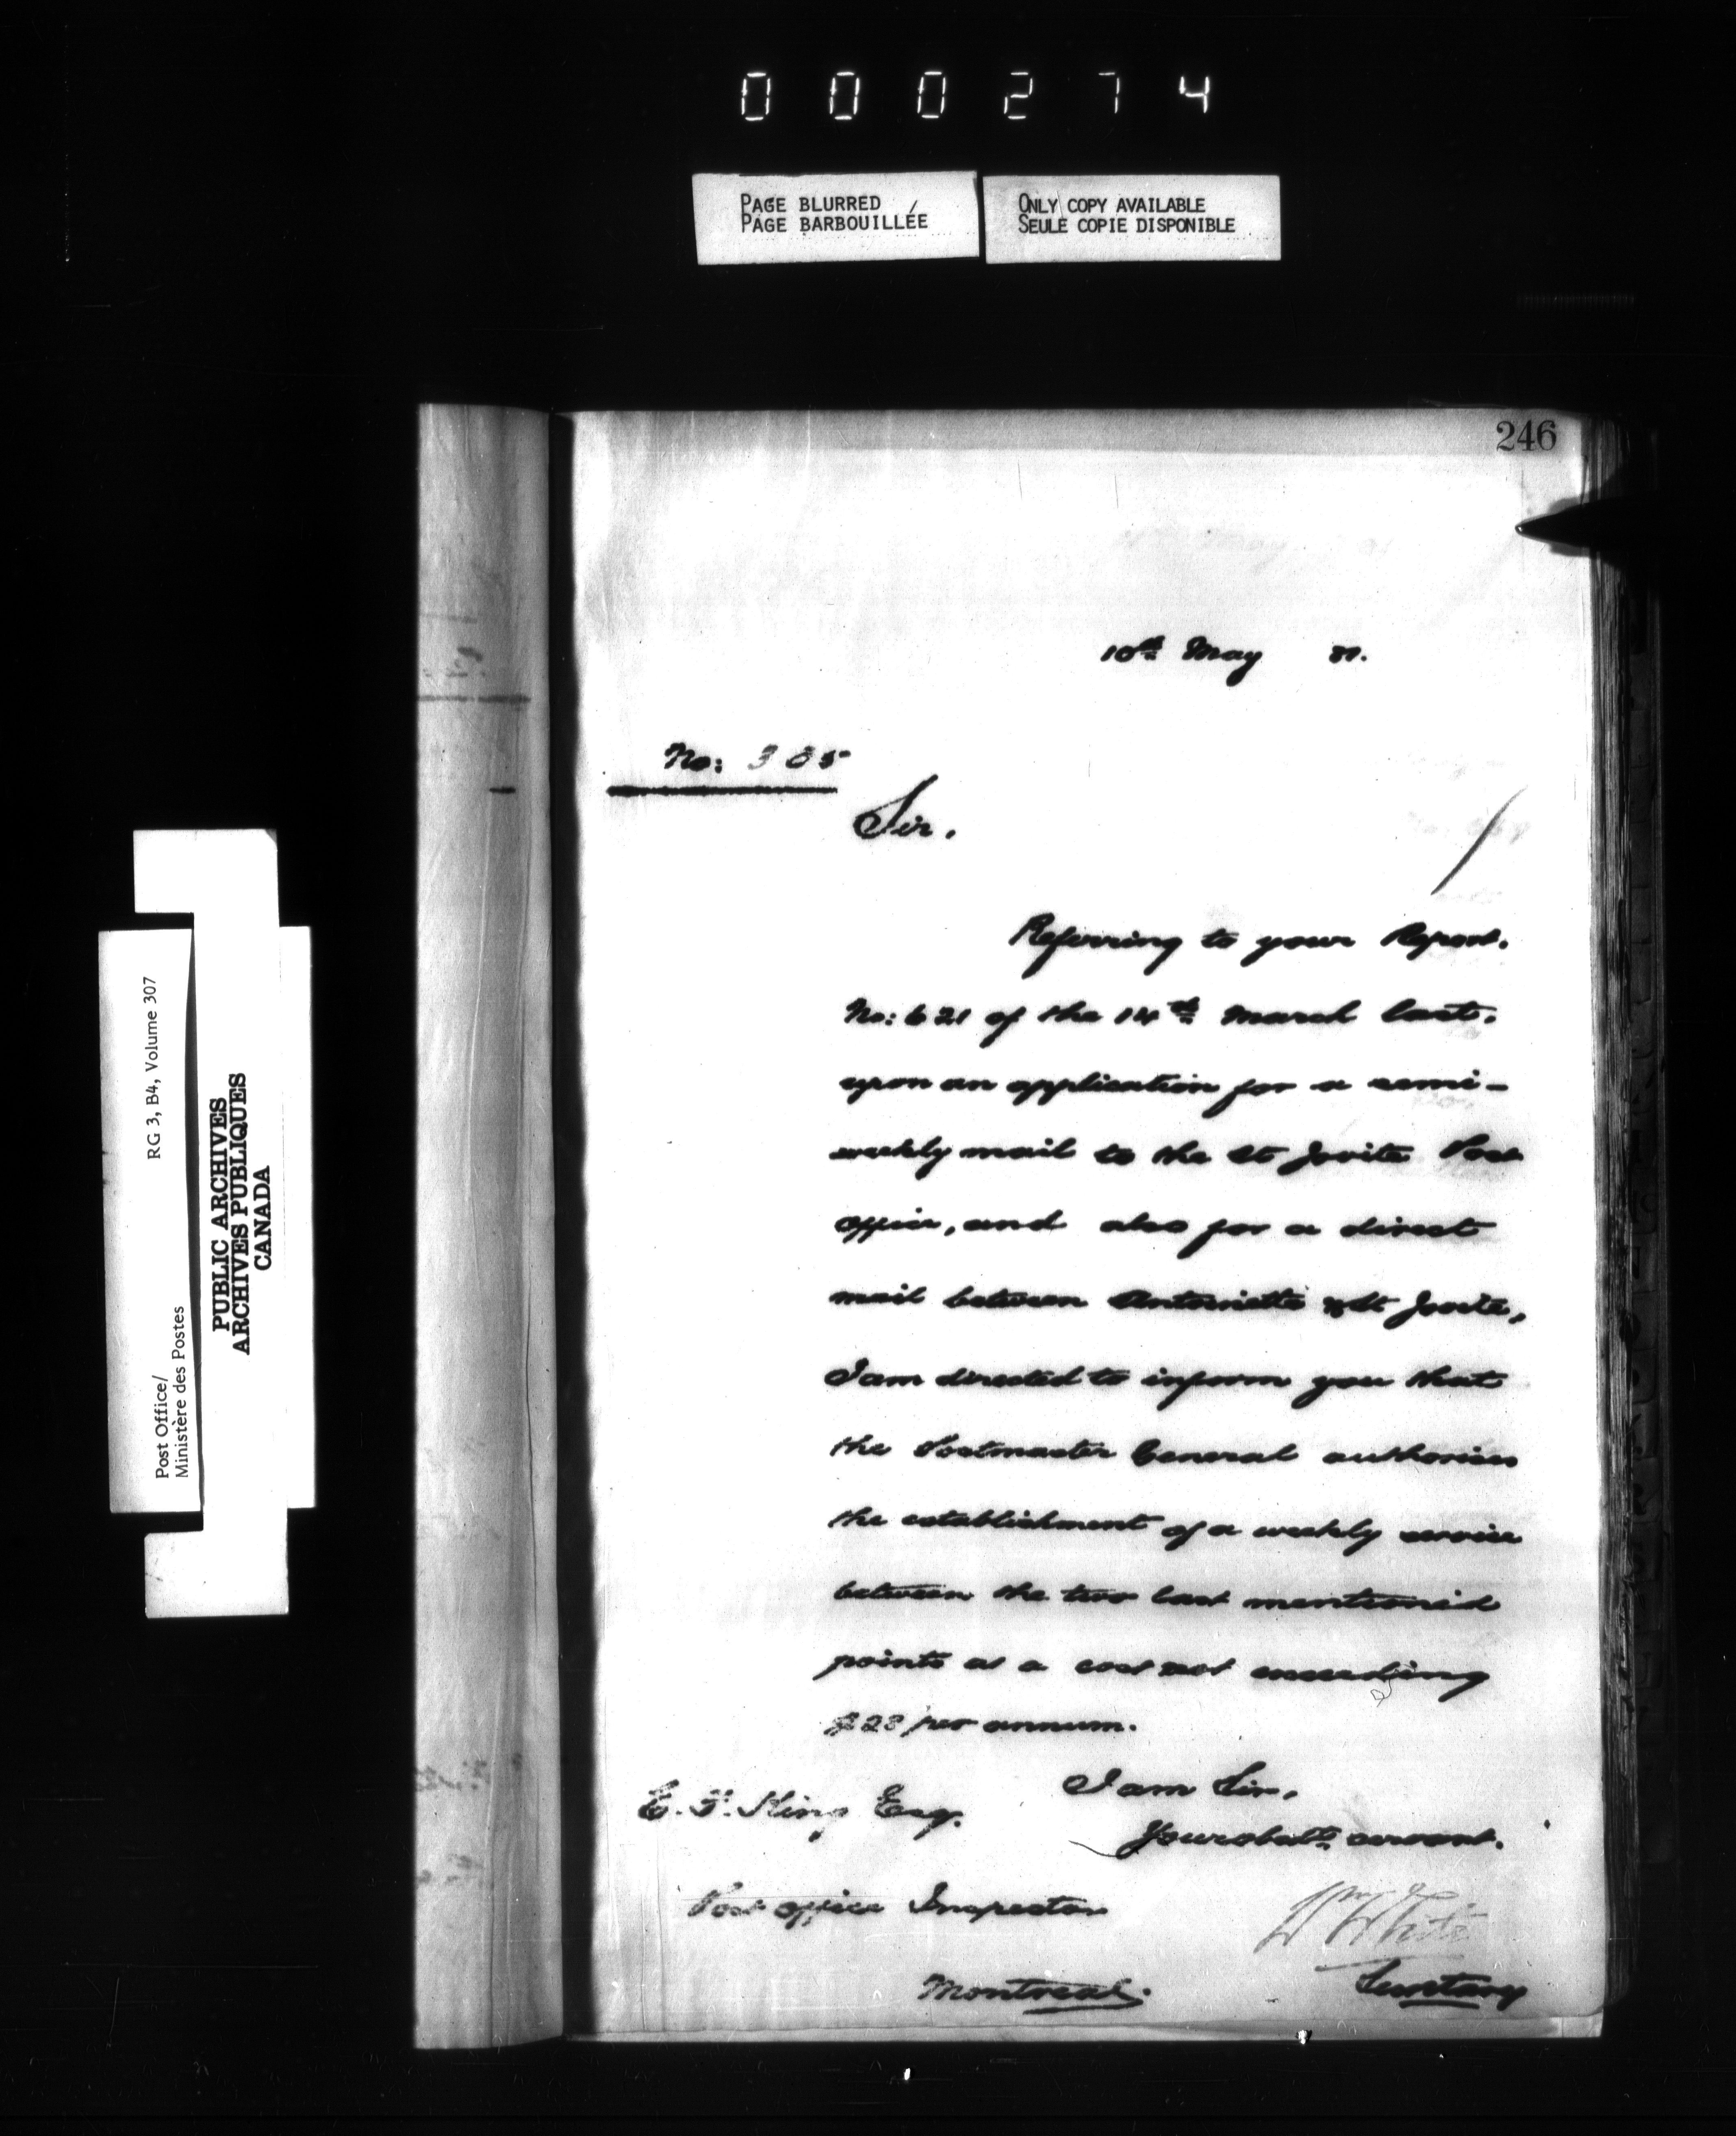 000274
PAGE BLURRED
PAGE BARBOUILLÉE
ONLY COPY AVAILABLE
SEULE COPIE DISPONIBLE
246
10th May 81.
No: 305
Sir.
Referring to your Report.
No: 621 of the 14th March last.
upon an application for a semi-
weekly mail to the St Jovite Post
office, and also for a direct
mail between Antoinette & St Jovite,
I am directed to inform you that
the Postmaster General authorises
the establishment of a weekly service
between the two last mentioned
points at a cost not exceeding
$28 per annum.
I am Sir.
Your obdt. servant.
E. F. King Esq.
Post office Inspector
Montreal.
Wm White
Secretary
Post Office/
Ministère des Postes
RG 3, B4, Volume 307
PUBLIC ARCHIVES
ARCHIVES PUBLIQUES
CANADA